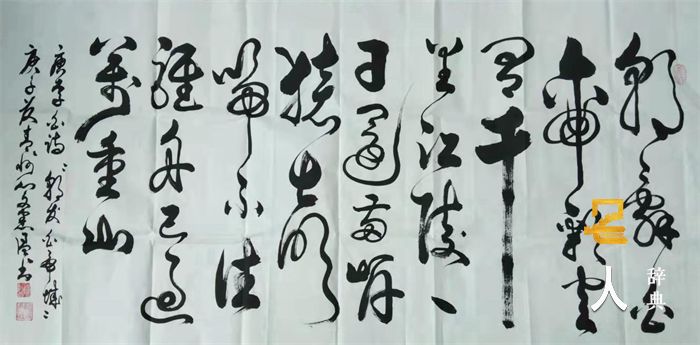 朝辞白
帝彩云
间千
里江陵一
日還两岸
猿声
啼不住
轻舟已過
萬重山
唐李白诗朝发白帝城
庚子 青州 书
人辞典